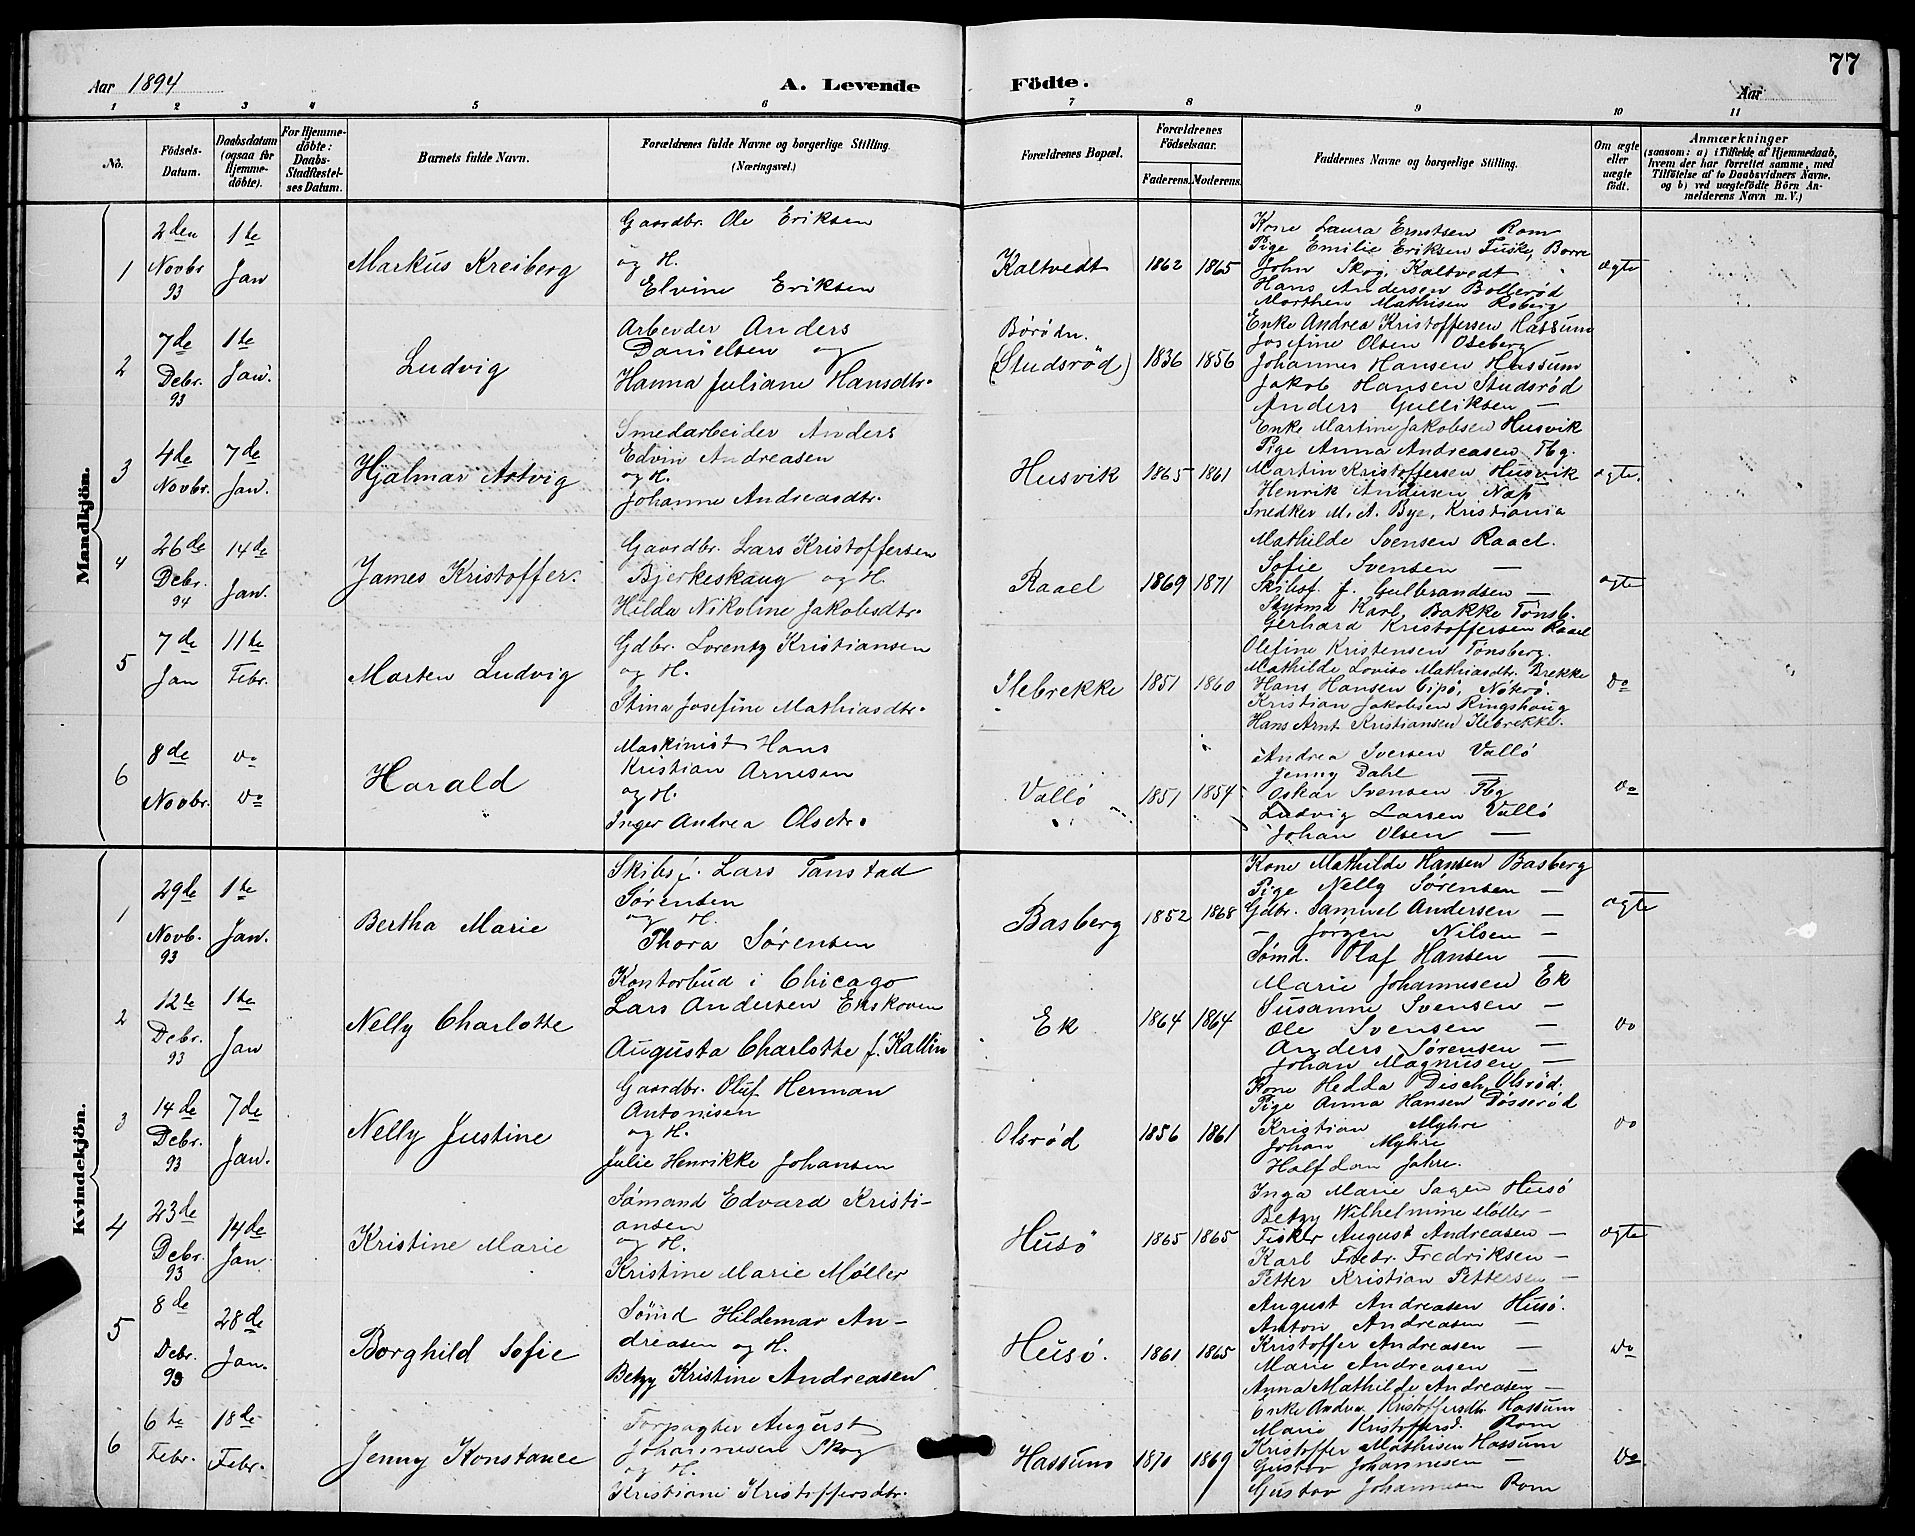 77
Aar 1894 A. Levende Födte. Aar
1 2 3 4 5 6 7 8 9 10 11
No.
Födsels-Datum.
Daabsdatum (ogsaa for Hjemme-döbte).
For Hjemme-döbte: Daabs-Stadfæstel-ses Datum.
Barnets fulde Navn.
Forældrenes fulde Navne og borgerlige Stilling.
(Næringsvei.)
Forældrenes Bopæl.
Forældrenes Födselsaar.
Faderens. Moderens.
Faddernes Navne og borgerlige Stilling.
Om ægte eller uægte födt.
Anmærkninger
(saasom: a) i Tilfælde af Hjemmedaab,
hvem der har forrettet samme, med
Tilföielse af to Daabsvidners Navne,
og b) ved uægtefödte Börn An-
melderens Navn m. V.)
Mandkjön.
1
2den Novbr 93
1te Jan
Markus Kreiberg
Gaardbr. Ole Eriksen
og H.
Elvine Eriksen
Kaltvedt
1862 1865
Kone Laura Ernstsen Rom
Pige Emilie Eriksen Fuske, Borre
John Skog, Kaltvedt
Hans Andersen Bollerød
Morthen Mathisen Roberg
ægte
2
7de Debr. 93
1te Jan.
Ludvig
Arbeider Anders
Danielsen og
Hanna Juliane Hansdtr.
Børødn.
(Studsrød)
1836 1856
Enke Andrea Kristoffersen Hassum
Josefine Olsen Oseberg
Johannes Hansen Hassum
Jakob Hansen Studsrød
Anders Gulliksen —
3
4de Novbr.
7de Jan.
Hjalmar Astvig
Smedarbeider Anders
Edvin Andreasen
og H.
Johanne Andreasdtr.
Husvik
1865 1861
Enke Martine Jakobsen Husvik
Pige Anna Andreasen Tbg.
Martin Kristoffersen Husvik
Henrik Andersen Næs
Snedker M. A. Bye, Kristiania
ægte.
4
26de Debr. 94
14de Jan.
James Kristoffer.
Gaardbr. Lars Kristoffersen
Bjerkeskaug og H.
Hilda Nikoline Jakobsdtr.
Raael
1869 1871
Mathilde Svensen Raael.
Sofie Svensen —
Skibsf. J. Gulbrandsen —
Styrmd Karl Bakke Tønsb.
Gerhard Kristoffersen Raael
ægte
5
7de Jan
11te Febr.
Morten Ludvig
Gdbr. Lorentz Kristiansen
og H.
Stina Josefine Mathiasdtr.
Ilebrekke
1851 1860
Olefine Kristensen Tønsberg.
Mathilde Lovise Mathiasdtr. Brekke
Hans Hansen Gipö, Nöterö.
Kristian Jakobsen Ringshoug
Hans Arnt Kristiansen Ilebrekke.
do
6
8de Novbr.
do do
Harald
Maskinist Hans
Kristian Arnesen
og H.
Inger Andrea Olsdtr.
Vallö
1851 1854
Andrea Iversen Vallö
Jenny Dahl —
Oskar Svensen Tbg
Ludvig Larsen Vallö
Johan Olsen —
do
Kvindekjön.
1
29de Novb. 93
1te Jan.
Bertha Marie
Skibsf. Lars Tanstad
Sørensen
og H.
Thora Sørensen
Basberg
1852 1868
Kone Mathilde Hansen Basberg
Pige Nelly Sørensen —
Gdbr. Samuel Andersen —
— Jørgen Nilsen —
Sømd. Olaf Hansen —
ægte
2
12te Debr. 93
1te Jan
Nelly Charlotte
Kontorbud i Chicago
Lars Andersen Ekskoven
Augusta Charlotte f. Kallin
Ek
1864 1864
Marie Johannesen Ek
Susanne Svensen —
Ole Svensen —
Anders Sørensen —
Johan Magnusen —
do
3
14de Debr. 93
7de Jan.
Nelly Justine
Gaardbr. Oluf Herman
Antonisen
og H.
Julie Henrikke Johansen
Olsrød
1856 1861
Kone Hedda Disch, Olsrød.
Pige Anna Hansen Døsserød
Kristian Myhre
Johan Myhre
Halfdan Jahre.
do
4
23de Debr. 93
14de Jan.
Kristine Marie
Sömand Edvard Kristi-
ansen
og H.
Kristine Marie Møller
Husö
1865 1865
Inga Marie Sagen Husö
Betzy Wilhelmine Møller —
Fisker August Andreasen —
Karl Fredr. Fredriksen —
Petter Kristian Pettersen —
ægte
5
8de Debr. 93
28de Jan.
Borghild Sofie
Sömd Hildemar An-
dreasen og H.
Betzy Kristine Andreasen
Husö.
1861 1865
August Andreasen Husö.
Anton Andreasen —
Kristoffer Andreasen —
Marie Andreasen —
Anna Mathilde Andreasen —
do
6
6te Febr.
18de Febr.
Jenny Konstance
Forpagter August
Johannesen Skog
og H.
Kristiane Kristoffersdtr.
Hassum
1870 1869
Enke Andrea Kristoffersdtr Hassum
Marie Kristoffersd. Rom
Kristoffer Mathisen Hassum
Gustav Johannesen —
Gustav Johannesen Rom
do